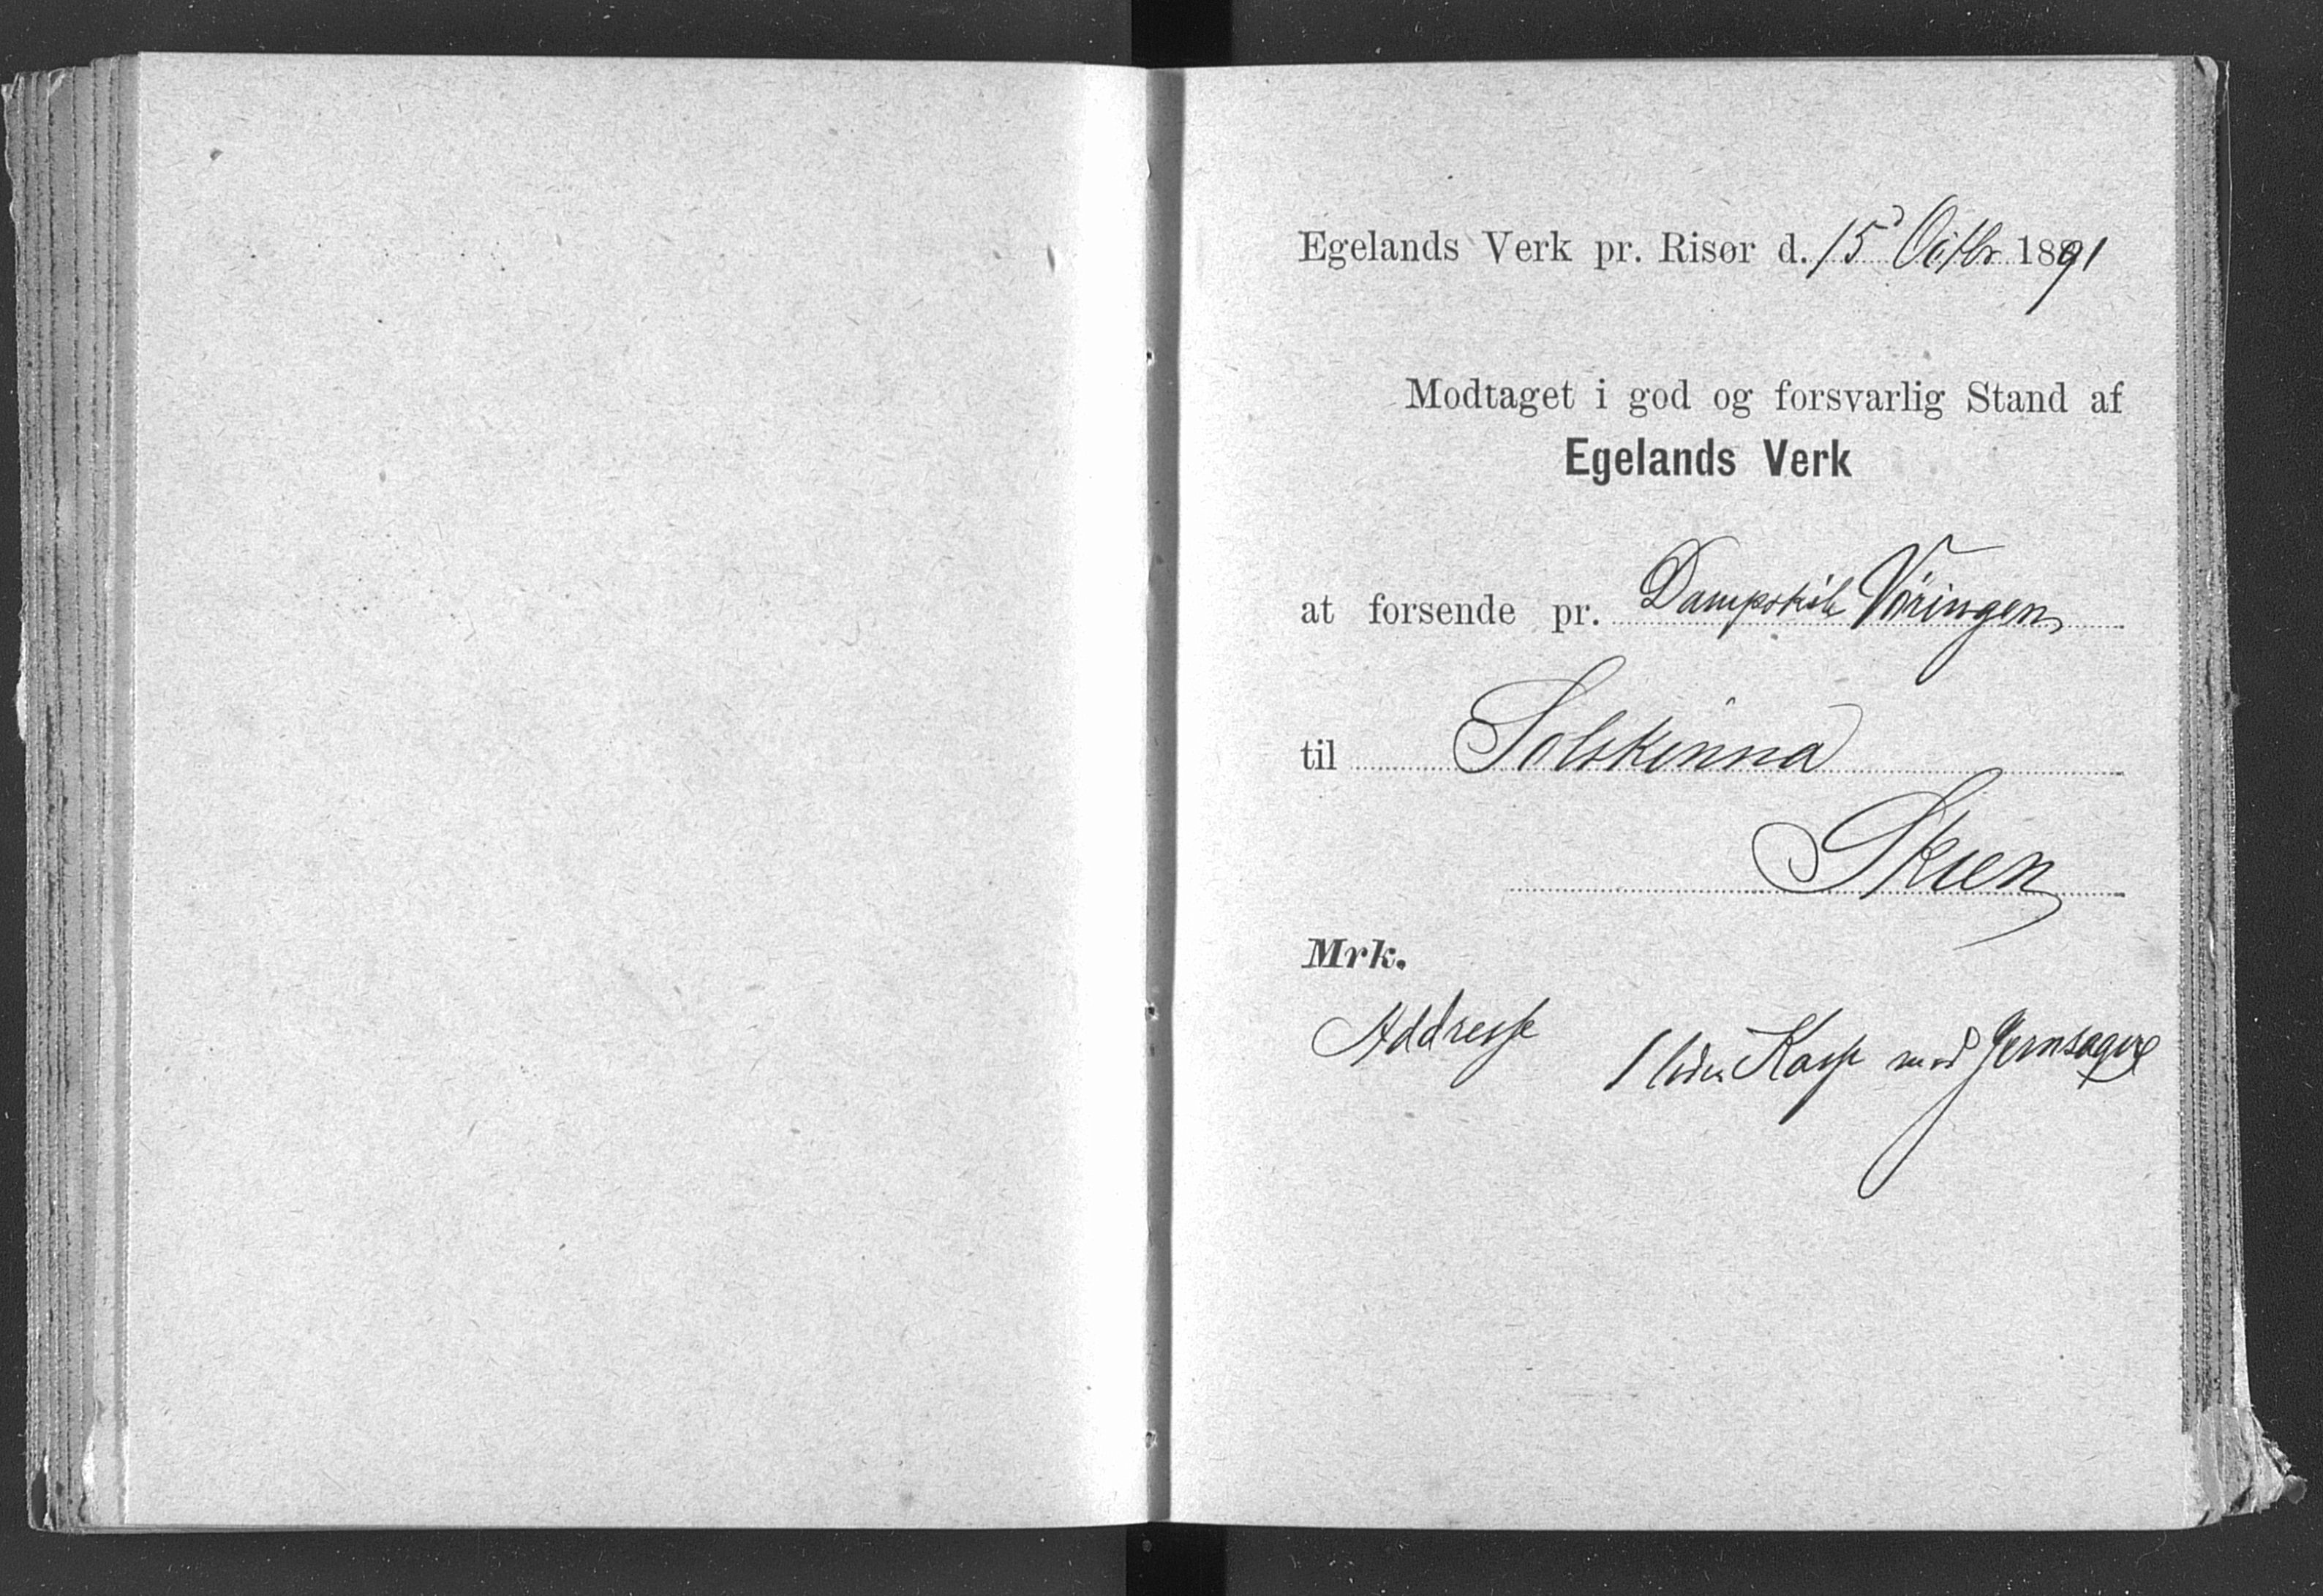 Egelands Verk pr. Risør d. 15 Octbr 1891
Modtaget i god og forsvarlig Stand af
Egelands Verk
at forsende pr. Dampskib Vöringen
til Solskinna
Skien
Mrk.
Addresse
1 liden Kasse med Jernsager